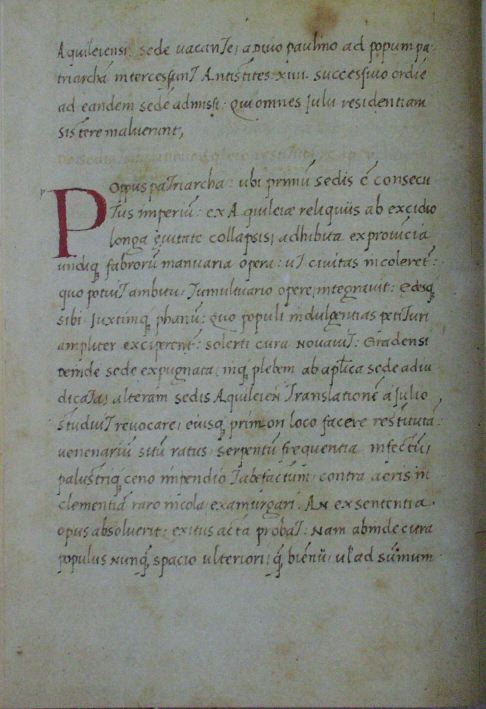 Aquileiensi: sede vacante; a Divo paulino ad popum pa
triarchã intercesserunt Antistites xiii. successivo ordie
ad eandem sedẽ admissi. Qui omnes Julii residentiam
sistere maluerunt;
Poppus patriarcha: ubi primũ sedis ẽ consecu
tus imperiũ: ex Aquileiæ reliquiis ab excidio
longa vetustate collapsis; adhibita ex provicia
undiq fabrorũ manuaria opera: ut civitas incoleretr:
quo potuit ambitu. Tumultuario opere, integravit. Edesq
sibi. Juxtimq phanũ: quo populi indulgentias petituri
ampliter exciperent: solerti cura novavit: Gradensi
sede expugnata; inq plebem ab aplica sede adiu
dicata; alteram sedis Aquileien translationẽ a Julio
studuit revocare; eiusq primori loco facere restitutã
venenariũ sitũ ratus: serpentũ frequentia infectũ;
palustriq ceno inpendio tabefactum: contra aeris in
clementiã raro incola examurgari. An ex sententia
opus absolverit: exitus acta probat: Nam abinde cura
populus nunq spacio ulteriori; q bienũ: ul ad sũmum